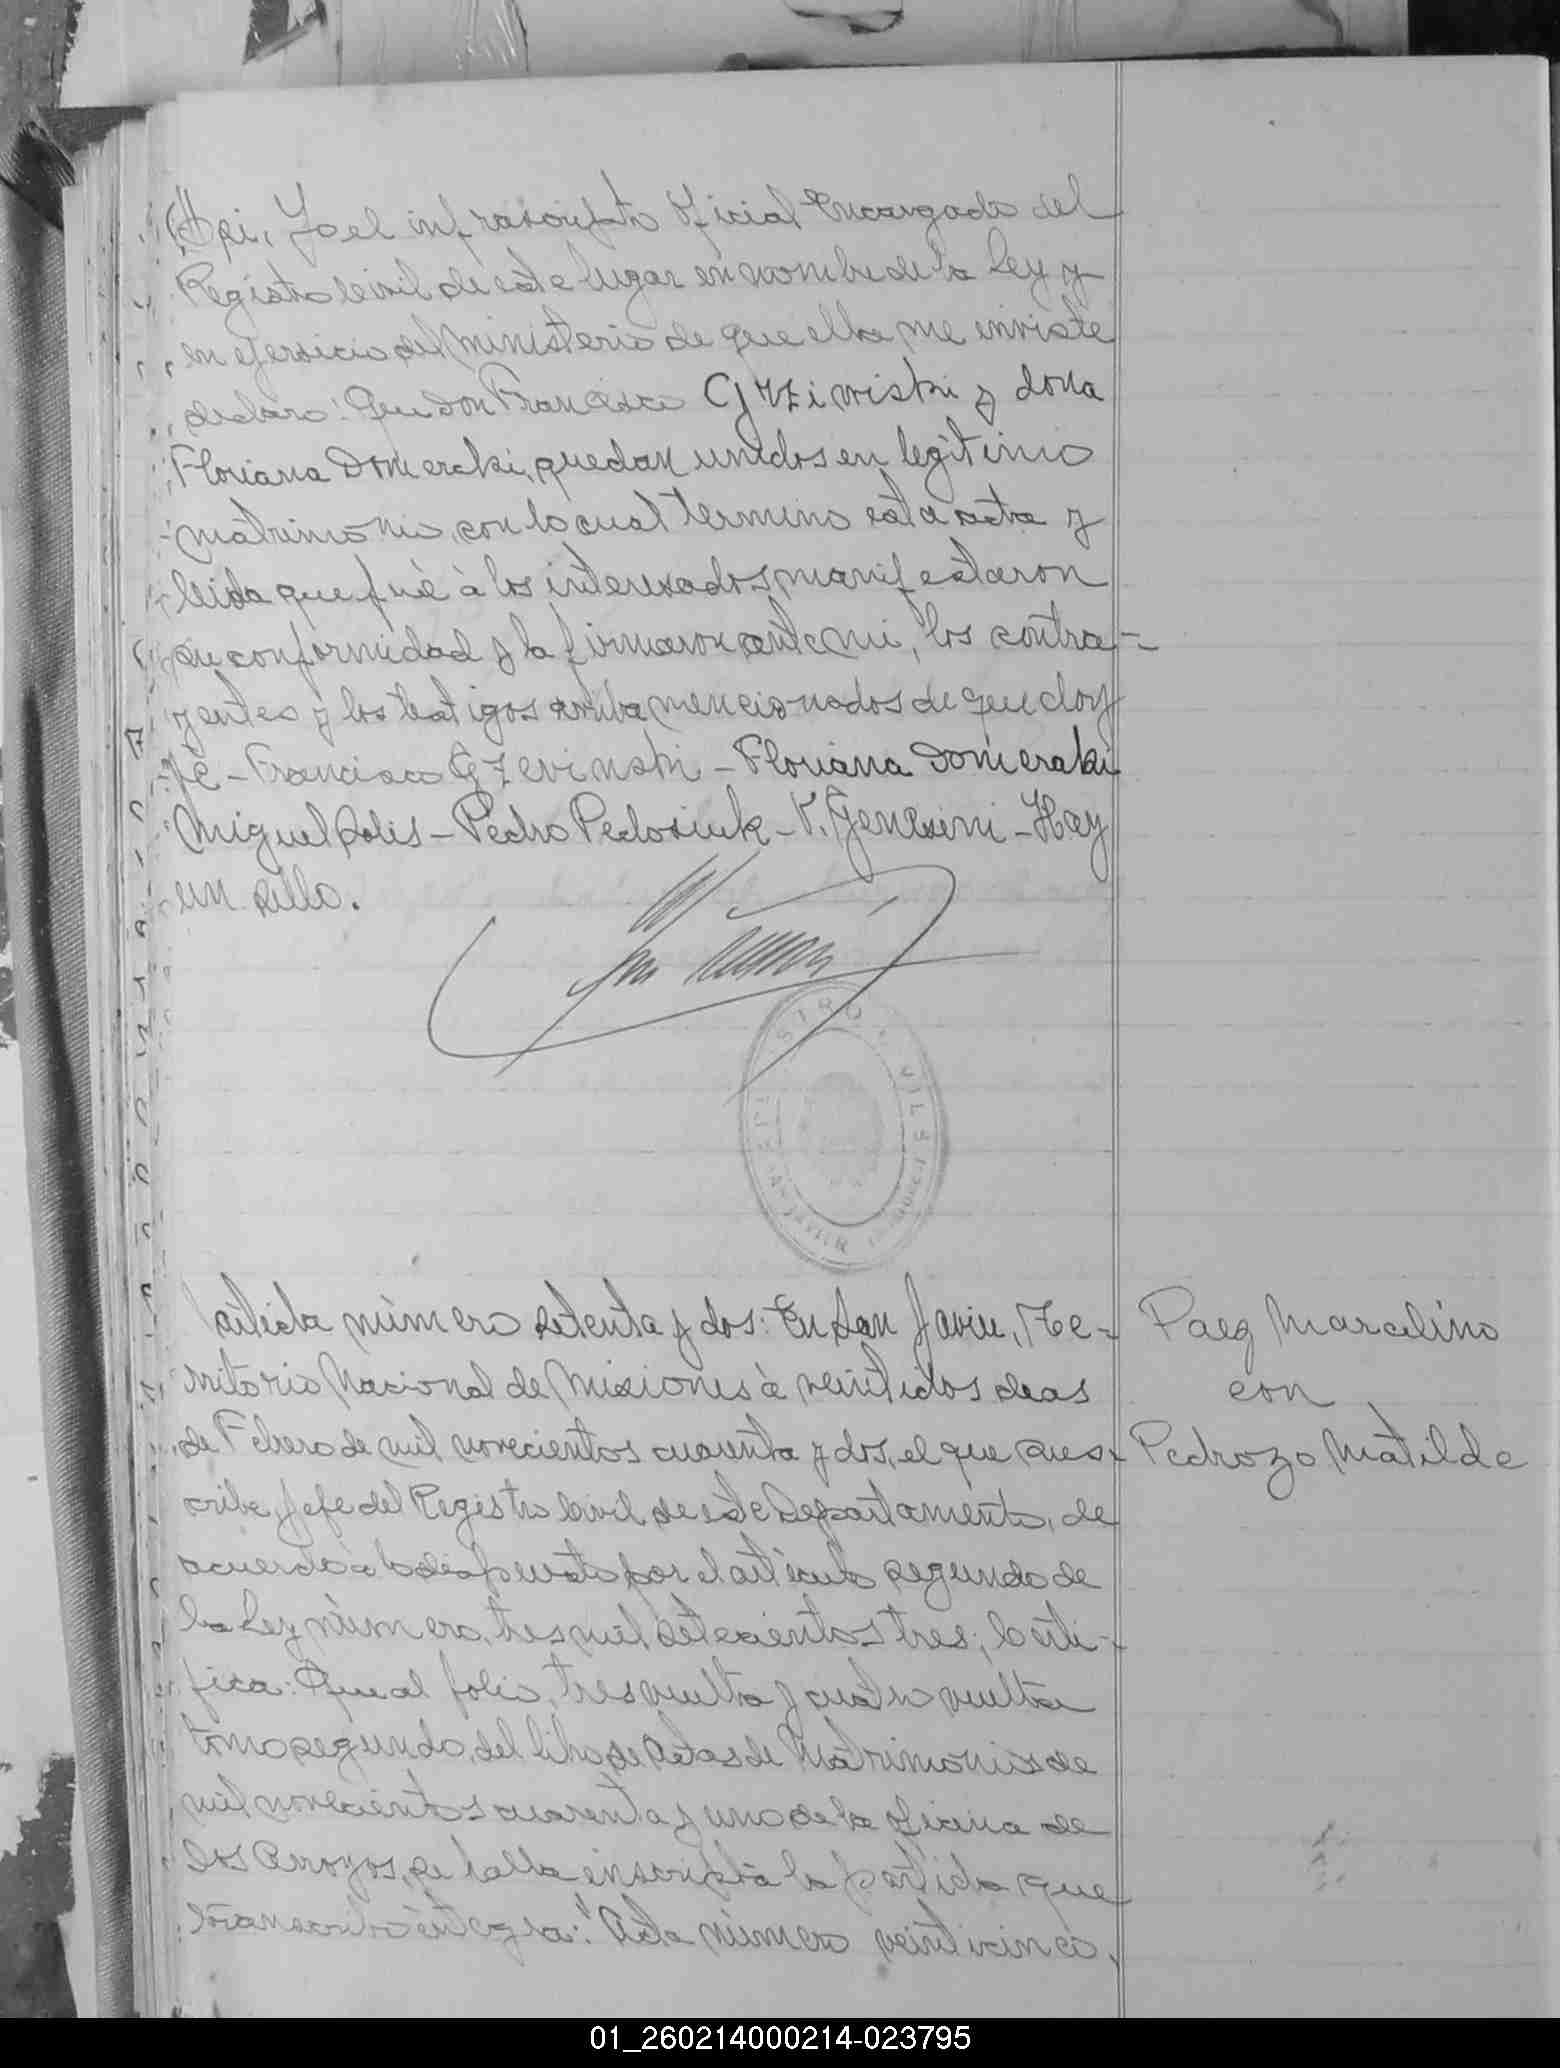 Yo el infrascripto Oficial Encargado del
Registro Civil de este lugar en nombre de la Ley y
en ejersicio del Ministerio de que ella me inviste
declaro: Que don Francisco Grziwiski y dona
Floriana Domeraki, quedan unidos en legitimo
matrimonio, con lo cual termino esta acta y
leida que fué à los interesados, manifestaron
su conformidad y la firmaron ante mi, los contra-
yentes y los testigos arriba mencionados de que doy
fe - Francisco Gzevinski - Floriana Domeraki
Miguel Solis - Pedro Pedosiuk - V. Genesini - Hay
un sello.
Partida número setenta y dos: En San Javier, Te-
rritorio Nacional de Misiones à veintidos dias
de Febrero de mil novecientos cuarenta y dos, el que sus-
cribe, Jefe del Registro Civil, de este Departamento, de
acuerdo à lo dispuesto por el articulo segundo de
la Ley número, tres mil setecientos tres; Certi-
fica: Que al folio, tres vuelta y cuatro vuelta
tomo segundo, del libro de Actas de Matrimonios de
mil novecientos cuarenta y uno de la oficina de
Los Arroyos, se halla inscripta la partida que
transcribo integra: "Acta número veinticinco,
Paez Marcelino
con
Pedrozo Matilde
01_260214000214-023795